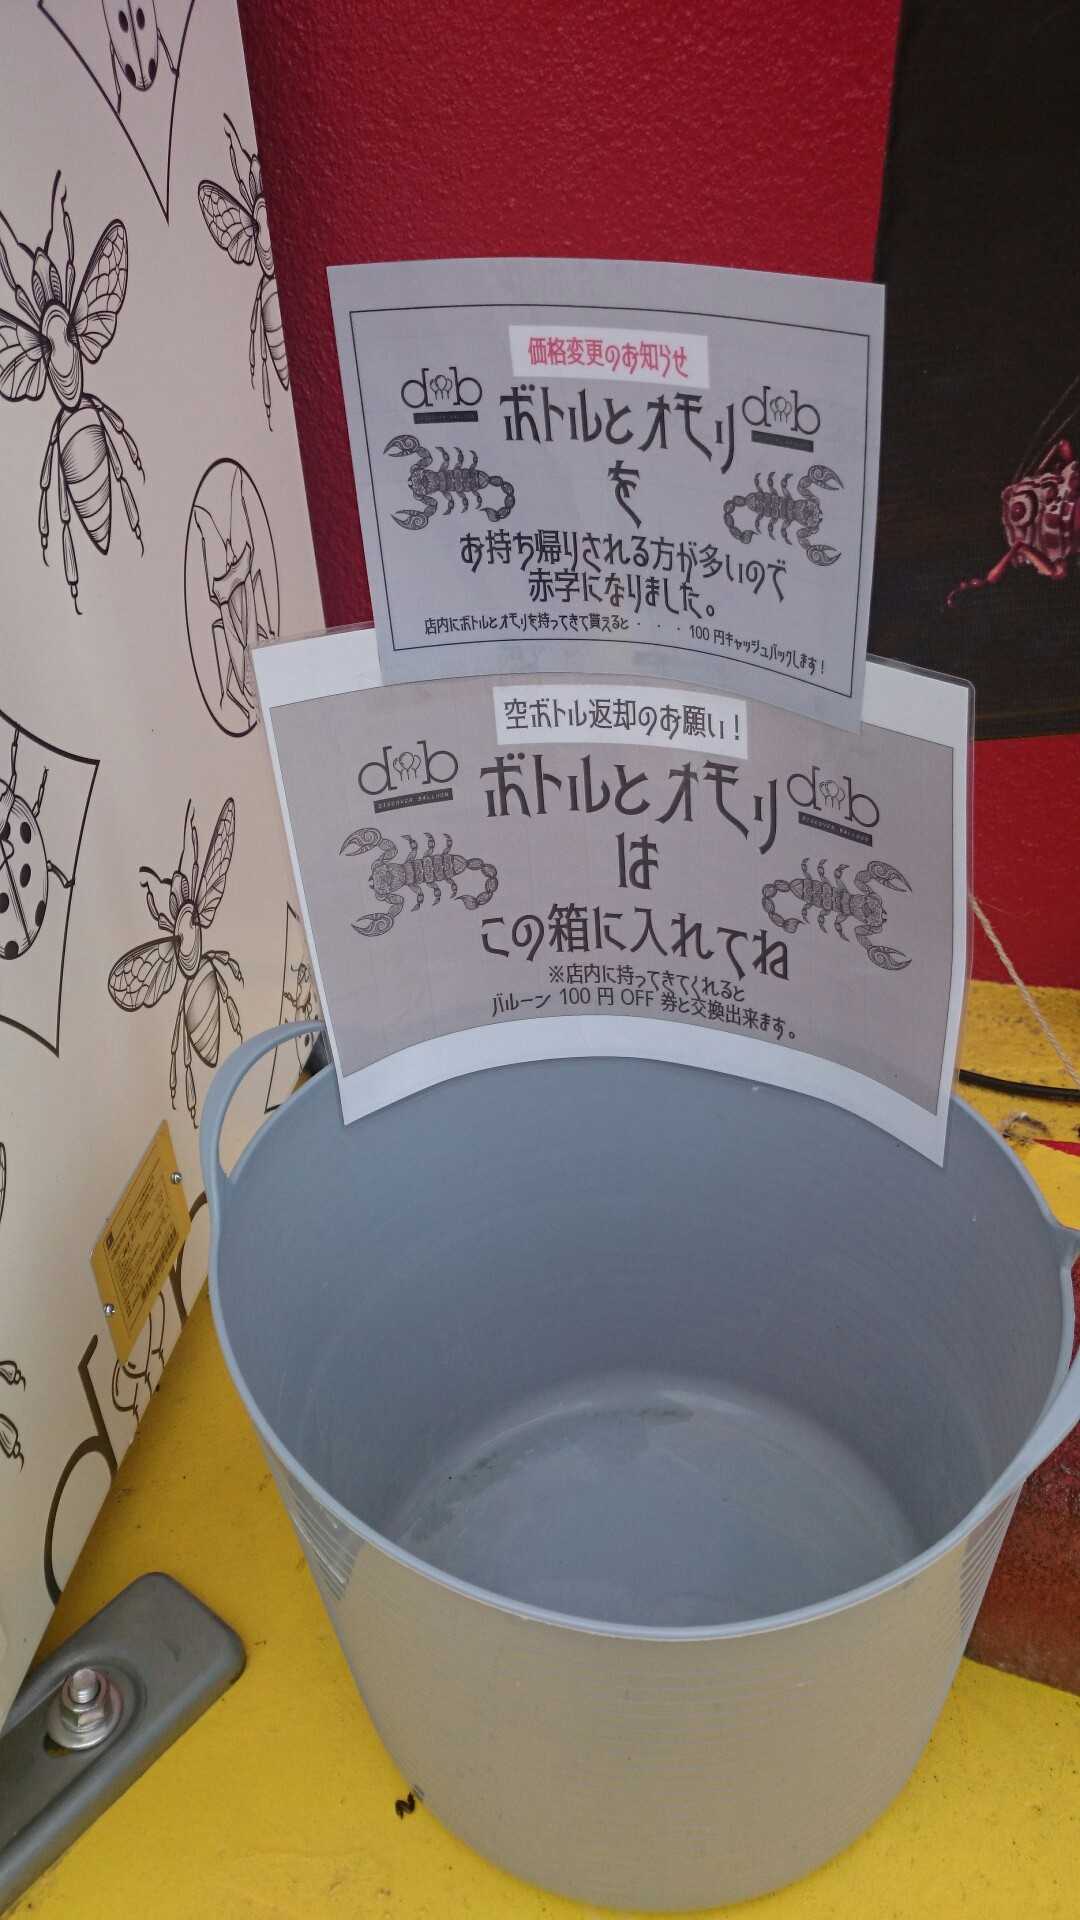 価格変更のお知らせ
dob
ボトルとオモリ
dob
を
お持ち帰りされる方が多いので
赤字になりました。
店内にボトルとオモリを持ってきて貰えると・・・100円キャッシュバックします!
空ボトル返却のお願い!
dob
DISCOVER BALLOON
ボトルとオモリ
dob
DISCOVER BALLOON
は
この箱に入れてね
※店内に持ってきてくれると
バルーン 100円 OFF 券と交換出来ます。